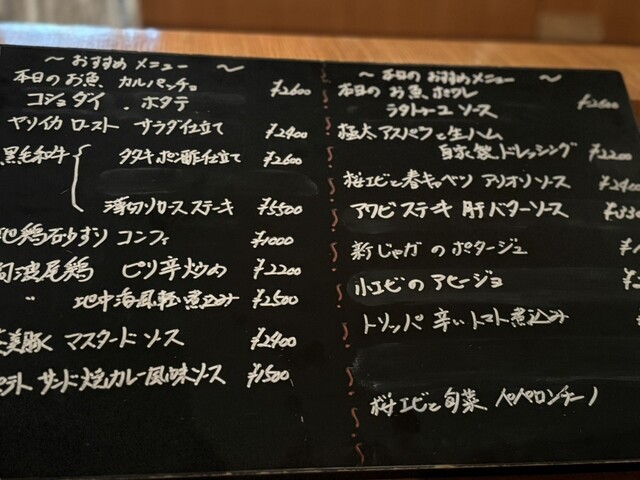 ～ おすすめ メニュー ～
本日のお魚 カルパッチョ
コショウダイ . ホタテ ¥2600
ヤリイカ ロースト サラダ仕立て ¥2400
黒毛和牛 { タタキ ポン酢仕立て ¥2600
薄切りロース ステーキ ¥5500
地鶏砂ずり コンフィ ¥1000
阿波尾鶏 ピリ辛炒め ¥2200
〃 地中海風軽煮込み ¥2500
美豚 マスタード ソース ¥2400
サンド焼 カレー風味ソース ¥1500
～ 本日の おすすめメニュー ～
本日 の お魚 ポワレ
ラタトゥーユ ソース ¥2600
極太アスパラと生ハム
自家製ドレッシング ¥2200
桜エビと春キャベツ アリオリソース
アワビ ステーキ 肝バターソース
新じゃが の ポタージュ
小エビの アヒージョ
トリッパ 辛いトマト煮込み
桜エビと旬菜 ペペロンチーノ